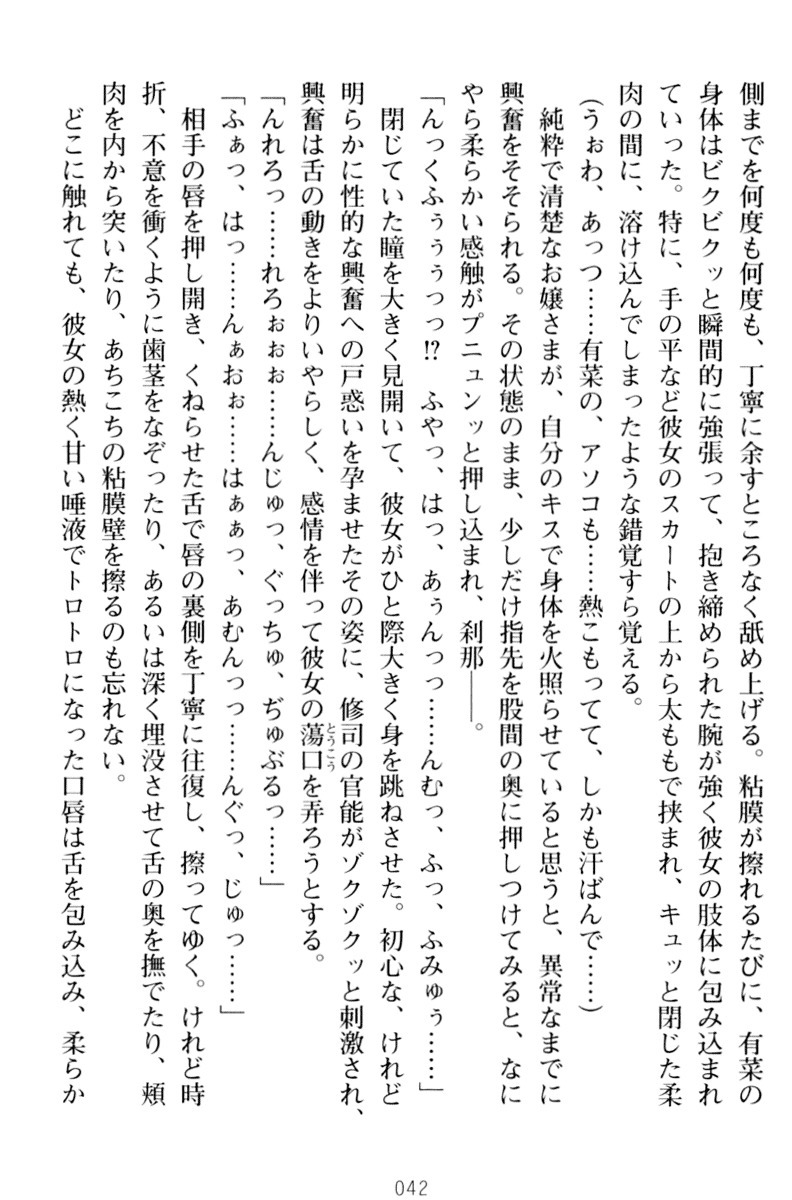 側までを何度も何度も、丁寧に余すところなく舐め上げる。粘膜が擦れるたびに、有菜の
身体はビクビクッと瞬間的に強張って、抱き締められた腕が強く彼女の肢体に包み込まれ
ていった。特に、手の平など彼女のスカートの上から太ももで挟まれ、キュッと閉じた柔
肉の間に、溶け込んでしまったような錯覚すら覚える。
(うぉわ、あっつ……有菜の、アソコも……熱こもってて、しかも汗ばんで……)
　純粋で清楚なお嬢さまが、自分のキスで身体を火照らせていると思うと、異常なまでに
興奮をそそられる。その状態のまま、少しだけ指先を股間の奥に押しつけてみると、なに
やら柔らかい感触がプニュンッと押し込まれ、刹那――。
「んっくふぅぅぅっっ!?　ふやっ、はっ、あぅんっっ……んむっ、ふっ、ふみゅぅ……」
　閉じていた瞳を大きく見開いて、彼女がひと際大きく身を跳ねさせた。初心な、けれど
明らかに性的な興奮への戸惑いを孕ませたその姿に、修司の官能がゾクゾクッと刺激され、
興奮は舌の動きをよりいやらしく、感情を伴って彼女の蕩口とうこうを弄ろうとする。
「んれろっ……れろぉぉぉ……んじゅっ、ぐっちゅ、ぢゅぶるっ……」
「ふぁっ、はっ……んぁおぉ……はぁぁっ、あむんっっ……んぐっ、じゅっ……」
　相手の唇を押し開き、くねらせた舌で唇の裏側を丁寧に往復し、擦ってゆく。けれど時
折、不意を衝くように歯茎をなぞったり、あるいは深く埋没させて舌の奥を撫でたり、頬
肉を内から突いたり、あちこちの粘膜壁を擦るのも忘れない。
　どこに触れても、彼女の熱く甘い唾液でトロトロになった口唇は舌を包み込み、柔らか
042